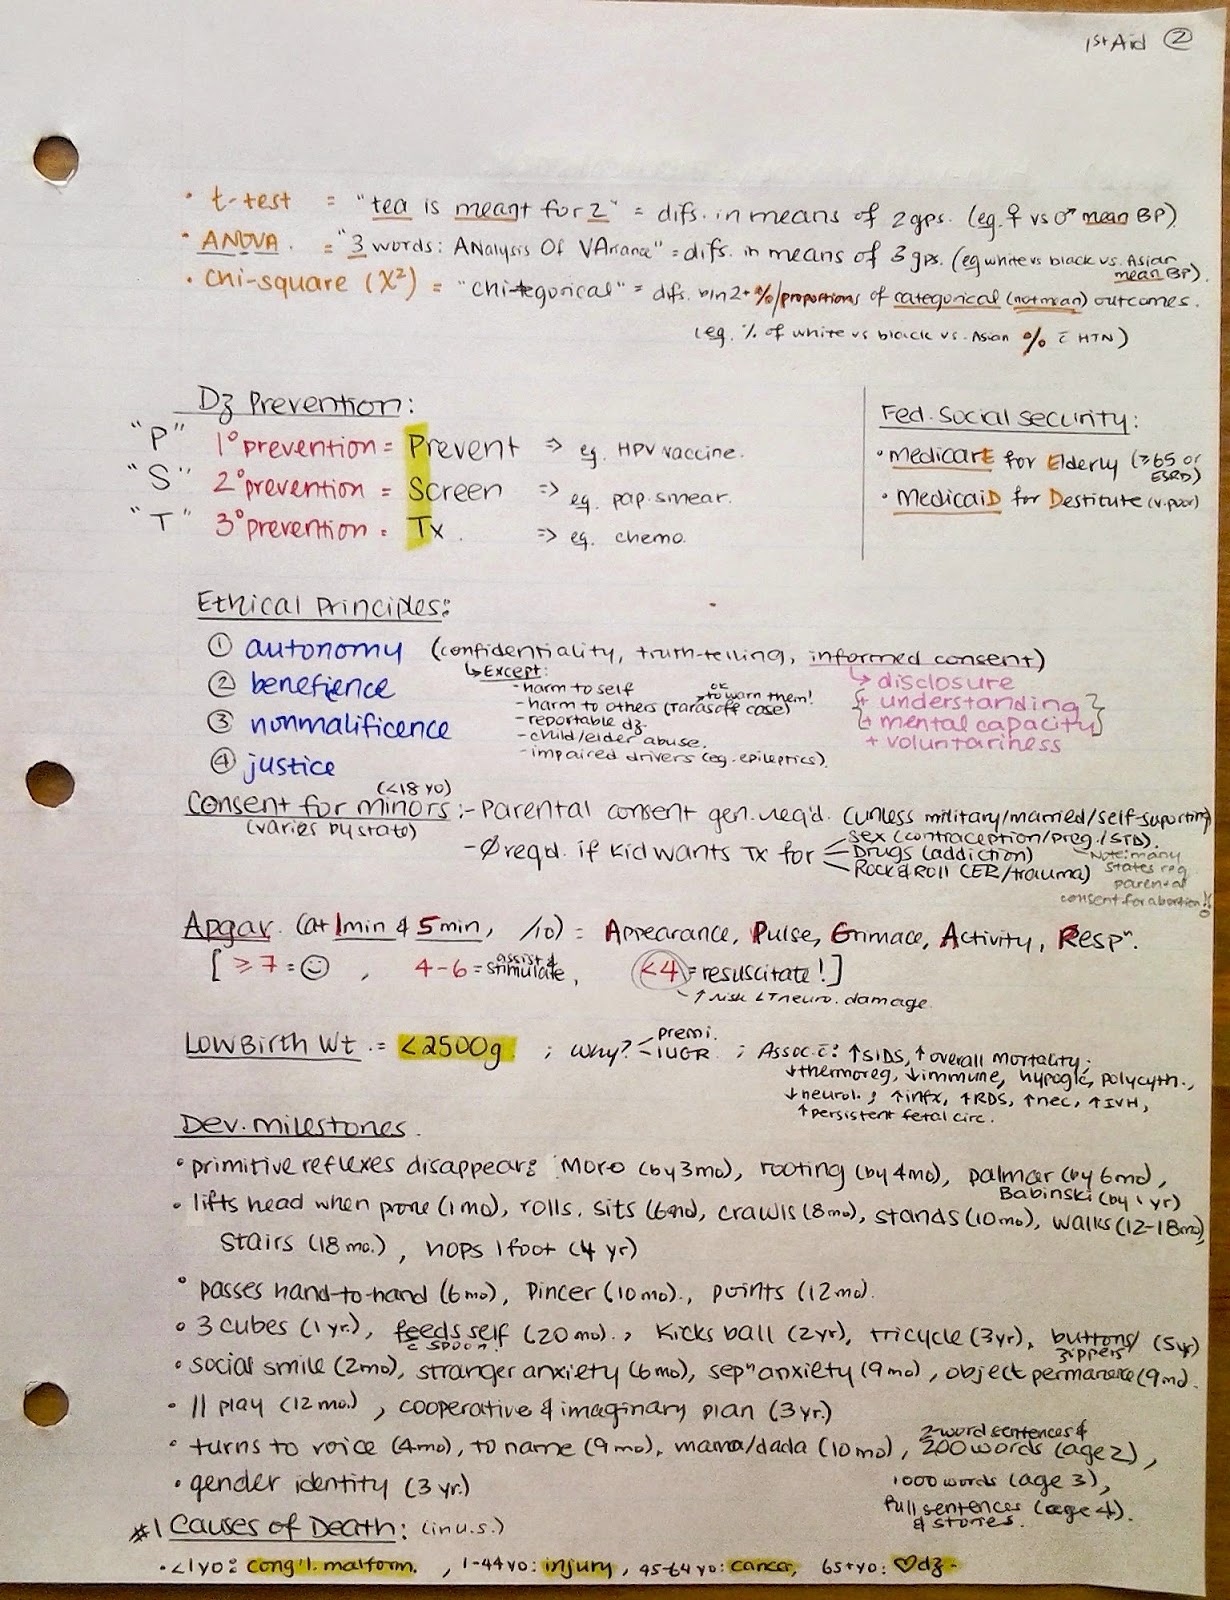 1st Aid ②
• t-test = "tea is meant for 2" = difs. in means of 2 gps. (eg. ♀ vs ♂ mean BP)
• ANOVA. = "3 words: ANalysis Of VAriance" = difs. in means of 3 gps. (eg white vs black vs. Asian
mean BP).
• Chi-square (X²) = "Chi-tegorical" = difs. b/n 2+ %/proportions of categorical (not mean) outcomes.
(eg. % of white vs black vs. Asian % c̄ HTN)
Dz Prevention:
"P" 1° prevention = Prevent => eg. HPV vaccine.
"S" 2° prevention = Screen => eg. pap smear.
"T" 3° prevention = Tx. => eg. chemo.
Fed. Social Security:
• MedicarE for Elderly (≥65 or
ESRD)
• MedicaiD for Destitute (v. poor)
Ethical Principles:
① autonomy (confidentiality, truth-telling, informed consent)
↳ Except:
- harm to self
- harm to others (Tarasoff case) → ok to warn them!
- reportable dz.
- child/elder abuse.
- impaired drivers (eg. epileptics).
↳ disclosure
{+ understanding}
{+ mental capacity}
+ voluntariness
② benefience
③ nonmalificence
④ justice
(<18 yo)
Consent for minors: - Parental consent gen. req'd. (unless military/married/self-suporting)
(varies by state)
- Ø reqd. if kid wants Tx for
Sex (contraception/preg./STD).
Drugs (addiction)
Rock & Roll (ER/trauma)
Note: many
states req
parental
consent for abortion!!
Apgar (at 1min & 5 min, /10) = Appearance, Pulse, Grimace, Activity, Respⁿ.
[ ≥7 = ☺ , 4-6 = assist & stimulate, <4 = resuscitate! ]
↑ risk LT neuro. damage.
Low Birth Wt. = <2500g ; why? premi. IUGR ; Assoc. c̄: ↑SIDS, ↑overall mortality;
↓thermoreg, ↓immune, hypoglc, polycyth.,
↓neurol.; ↑infx, ↑RDS, ↑nec, ↑IVH,
↑persistent fetal circ.
Dev. milestones.
• primitive reflexes disappear: Moro (by 3mo), rooting (by 4mo), palmar (by 6mo),
Babinski (by 1 yr)
• lifts head when prone (1mo), rolls, sits (6mo), crawls (8mo), stands (10mo), walks (12-18mo),
stairs (18 mo.), hops 1 foot (4 yr)
• passes hand-to-hand (6mo), Pincer (10mo)., points (12mo).
• 3 cubes (1yr), feeds self c̄ spoon (20mo)., kicks ball (2yr), tricycle (3yr), buttons/zippers (5yr)
• social smile (2mo), stranger anxiety (6mo), sepⁿ anxiety (9mo), object permanence (9mo).
• // play (12mo.), cooperative & imaginary plan (3yr.)
• turns to voice (4mo), to name (9mo), mama/dada (10mo), 2-word sentences & 200 words (age 2),
1000 words (age 3),
full sentences & stories. (age 4).
• gender identity (3 yr.)
#1 Causes of Death: (in U.S.)
• <1yo: cong'l. malform., 1-44yo: injury, 45-64yo: cancer, 65+yo: ♡dz.